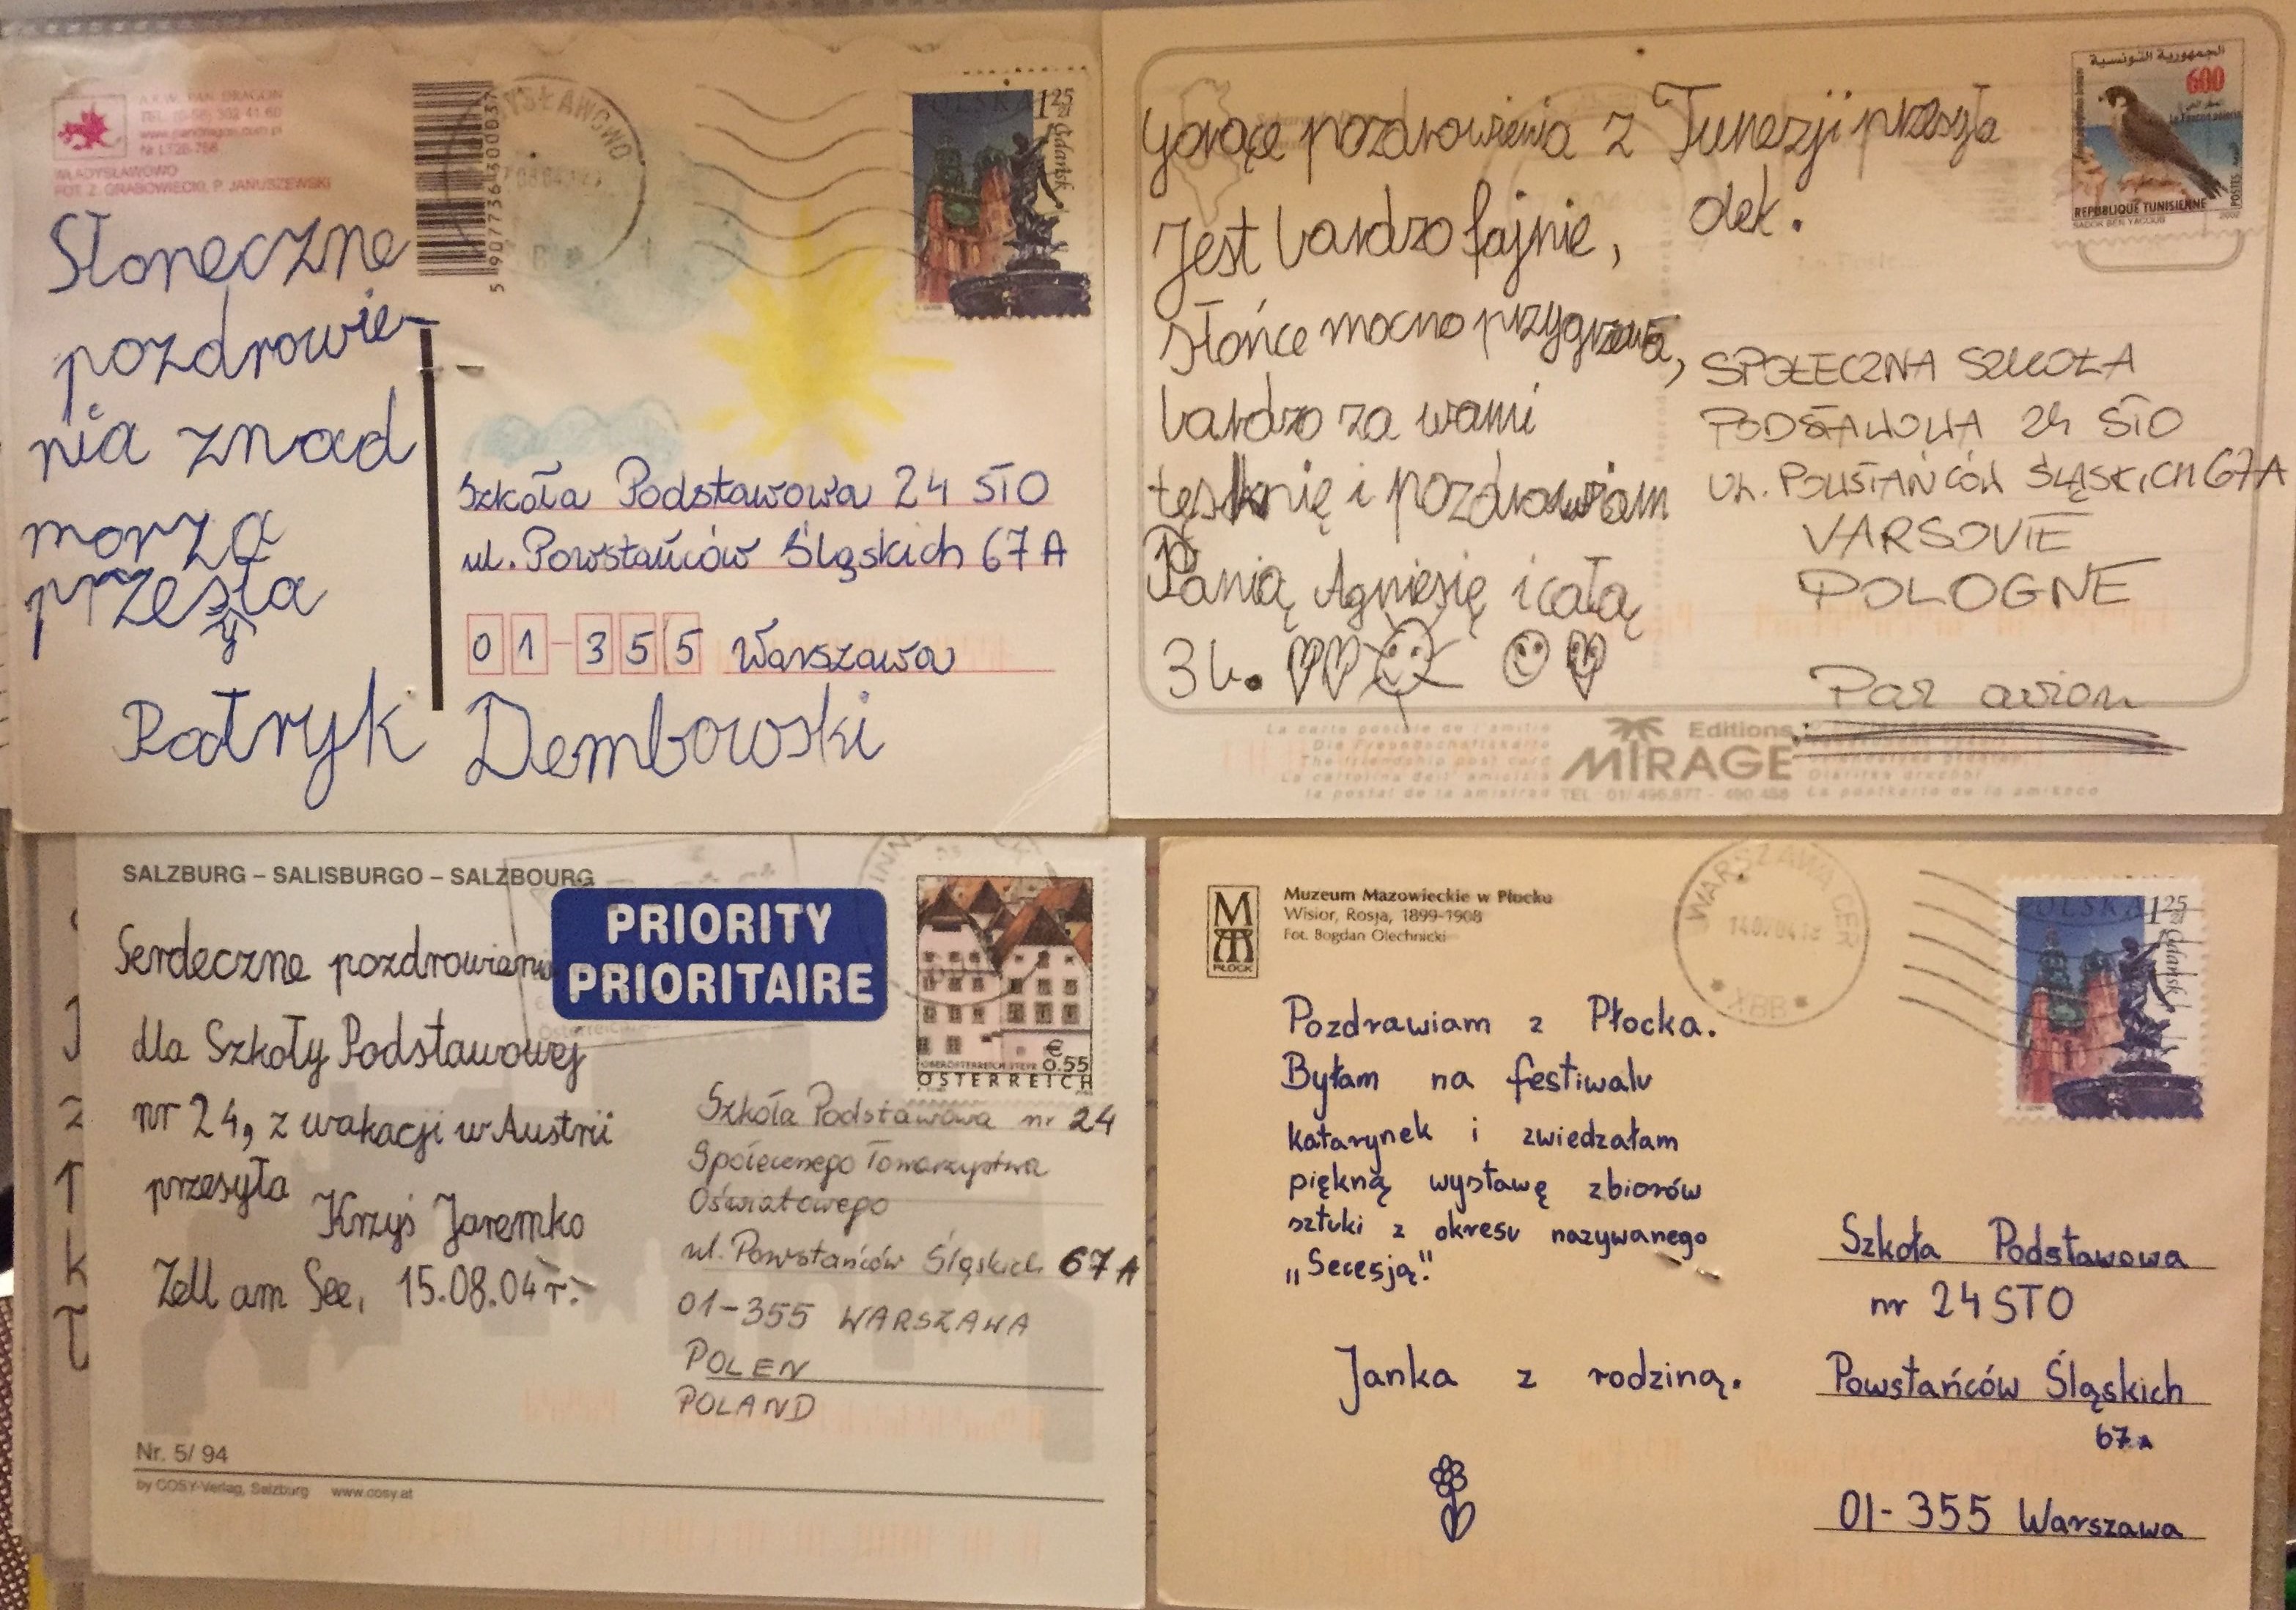 A.F.W. PAN DRAGON
www.pandragon.com.pl
WŁADYSŁAWOWO
FOT. Z. GRABOWIECKI, P. JANUSZEWSKI
POLSKA 1 25
Gdańsk
Słoneczne
pozdrowie-
nia znad
morza
przesyła
Patryk Dembowski
Szkoła Podstawowa 24 STO
ul. Powstańców Śląskich 67 A
01-355 Warszawa
الجمهورية التونسية
600
REPUBLIQUE TUNISIENNE
Gorące pozdrowienia z Tunezji przesyła
Olek.
Jest bardzo fajnie,
słońce mocno przygrzewa,
bardzo za wami
tęsknię i pozdrawiam
Panią Agniesię i całą
3b.
SPOŁECZNA SZKOŁA
PODSTAWOWA 24 STO
UL. POWSTAŃCÓW ŚLĄSKICH 67A
VARSOVIE
POLOGNE
Par avion
La carte postale de l'amitié
Editions
MIRAGE
TEL 01/ 496.877 - 490.488
SALZBURG – SALISBURGO – SALZBOURG
PRIORITY
PRIORITAIRE
€
0.55
ÖSTERREICH
Serdeczne pozdrowienia
dla Szkoły Podstawowej
nr 24, z wakacji w Austrii
przesyła
Krzyś Jaremko
Zell am See, 15.08.04 r.
Szkoła Podstawowa nr 24
Społecznego Towarzystwa
Oświatowego
ul. Powstańców Śląskich 67 A
01-355 WARSZAWA
POLEN
POLAND
Nr. 5/ 94
by COSY-Verlag, Salzburg www.cosy.at
M
PŁOCK
Muzeum Mazowieckie w Płocku
Wisior, Rosja, 1899-1908
Fot. Bogdan Olechnicki
WARSZAWA CER
XBB
POLSKA 1 25
Gdańsk
Pozdrawiam z Płocka.
Byłam na festiwalu
katarynek i zwiedzałam
piękną wystawę zbiorów
sztuki z okresu nazywanego
„Secesją".
Janka z rodziną.
Szkoła Podstawowa
nr 24 STO
Powstańców Śląskich
67 A
01-355 Warszawa